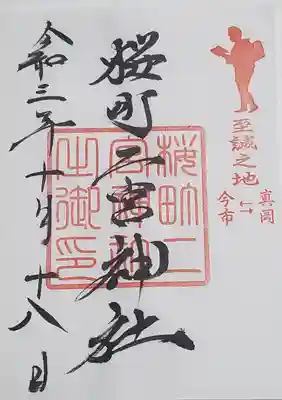 至誠之地
真岡
↕
今市
桜町二宮神社
桜町二
宮神社
之御印
令和三年十月十八日